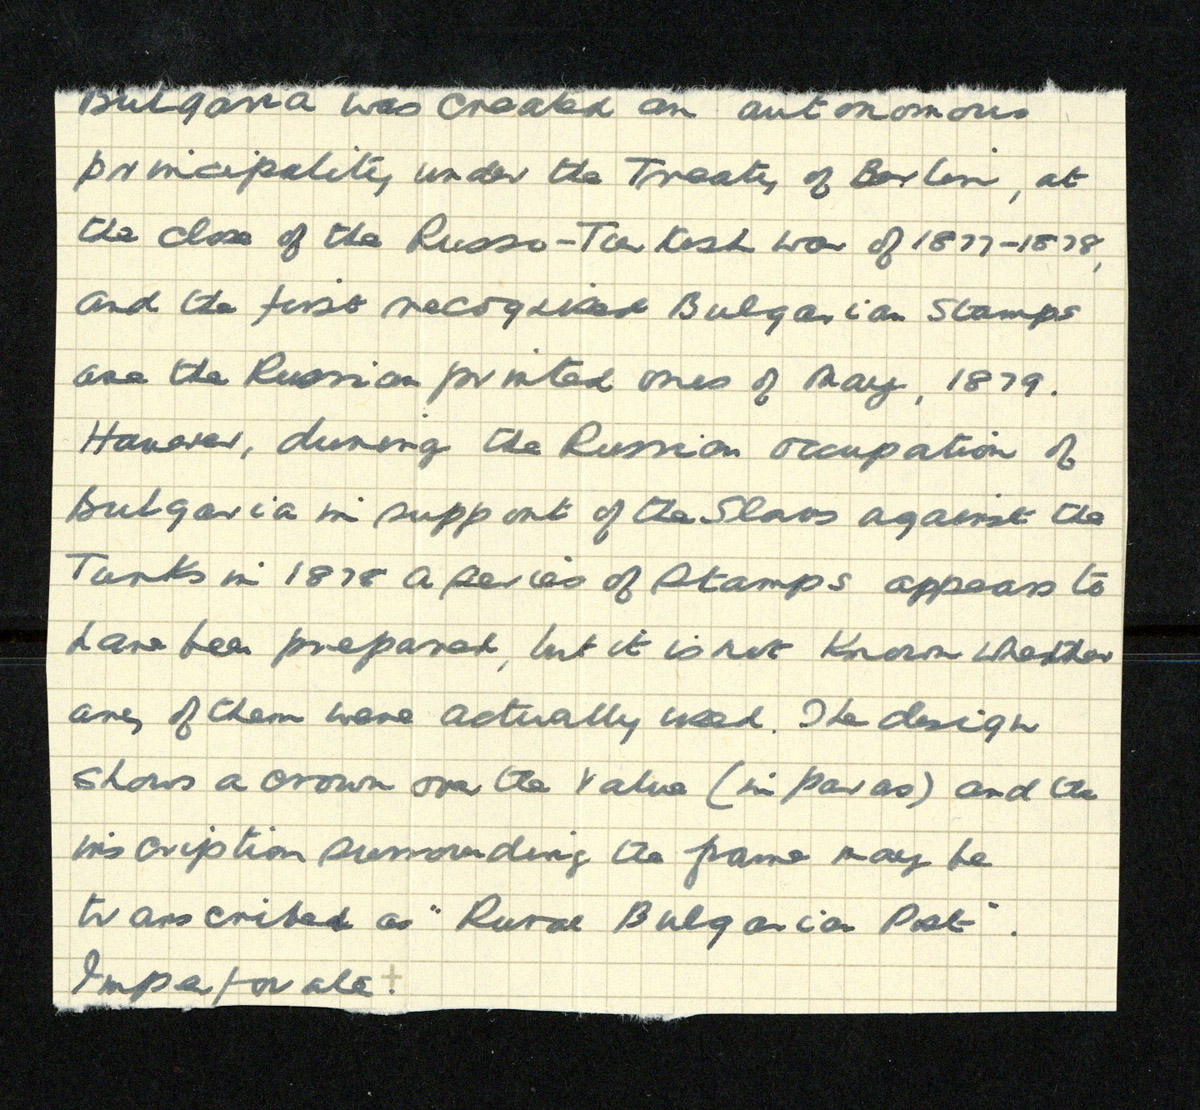 Bulgaria was created an autonomous
principality under the Treaty of Berlin, at
the close of the Russo-Turkish war of 1877-1878,
and the first recognised Bulgarian Stamps
are the Russian printed ones of May, 1879.
However, during the Russian occupation of
Bulgaria in support of the Slavs against the
Turks in 1878 a series of stamps appears to
have been prepared, but it is not known whether
any of them were actually used. The design
shows a crown over the value (in paras) and the
inscription surrounding the frame may be
transcribed as "Rural Bulgarian Post".
Imperforate.